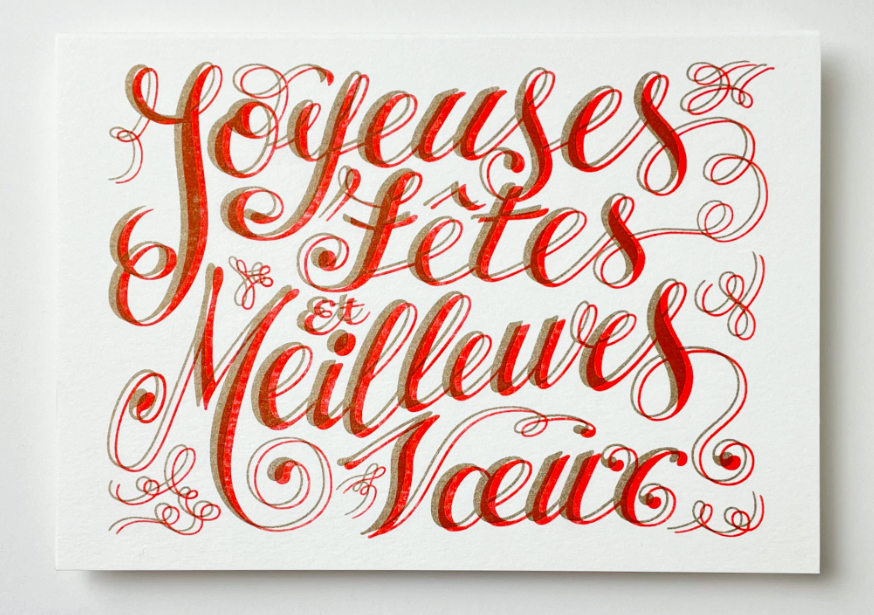 Joyeuses
Fêtes
Et
Meilleures
Vœux